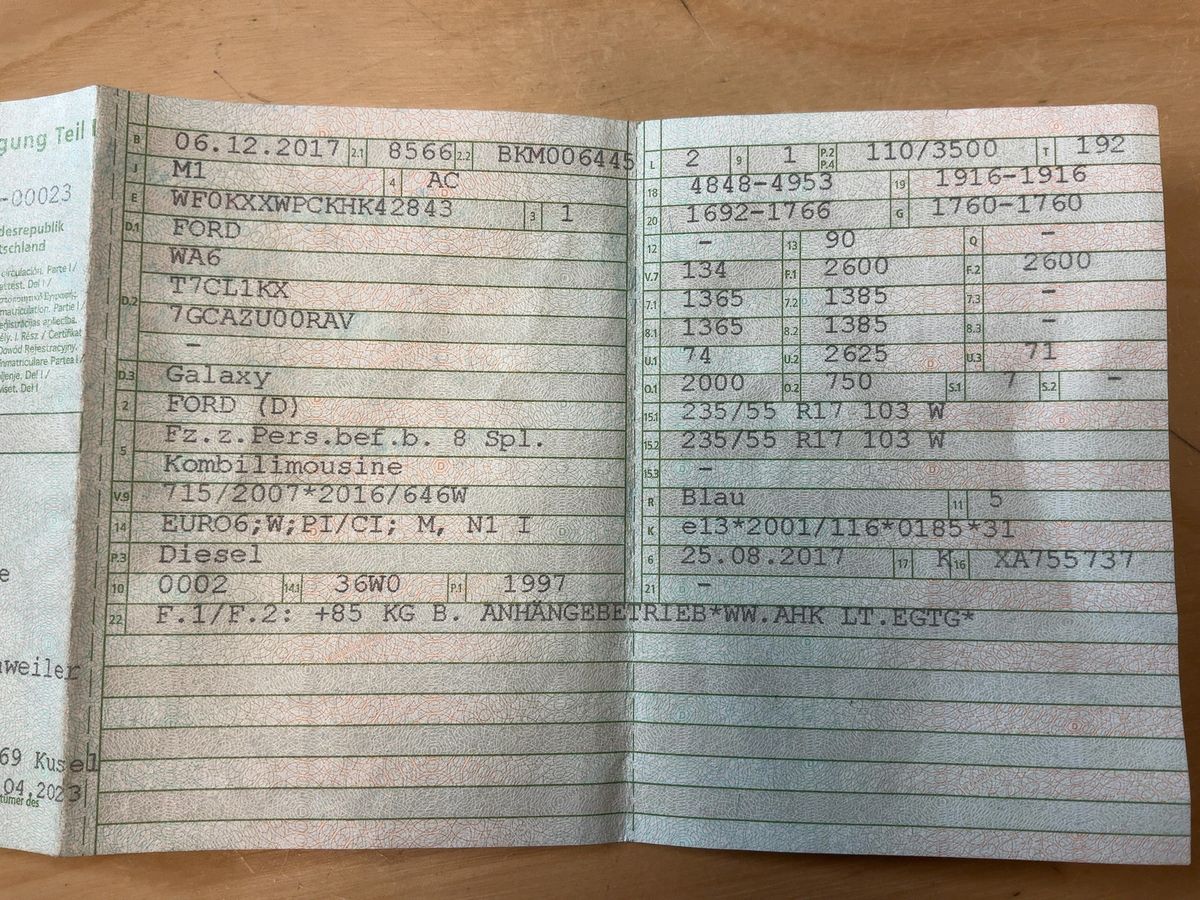 gung Teil I
-00023
desrepublik
tschland
B 06.12.2017 2.1 8566 2.2 BKM006445
J M1 4 AC
E WF0KXXWPCKHK42843 3 1
D.1 FORD
D.2 WA6
T7CL1KX
7GCAZU00RAV
–
D.3 Galaxy
2 FORD (D)
5 Fz.z.Pers.bef.b. 8 Spl.
Kombilimousine
V.9 715/2007*2016/646W
14 EURO6;W;PI/CI; M, N1 I
P.3 Diesel
10 0002 14.1 36W0 P.1 1997
22 F.1/F.2: +85 KG B. ANHÄNGEBETRIEB*WW.AHK LT.EGTG*
L 2 9 1 P.2 P.4 110/3500 T 192
18 4848-4953 19 1916-1916
20 1692-1766 G 1760-1760
12 – 13 90 Q –
V.7 134 F.1 2600 F.2 2600
7.1 1365 7.2 1385 7.3 –
8.1 1365 8.2 1385 8.3 –
U.1 74 U.2 2625 U.3 71
O.1 2000 O.2 750 S.1 7 S.2 –
15.1 235/55 R17 103 W
15.2 235/55 R17 103 W
15.3 –
R Blau 11 5
K e13*2001/116*0185*31
6 25.08.2017 17 K 16 XA755737
21 –
e
weiler
69 Kusel
.04.2023